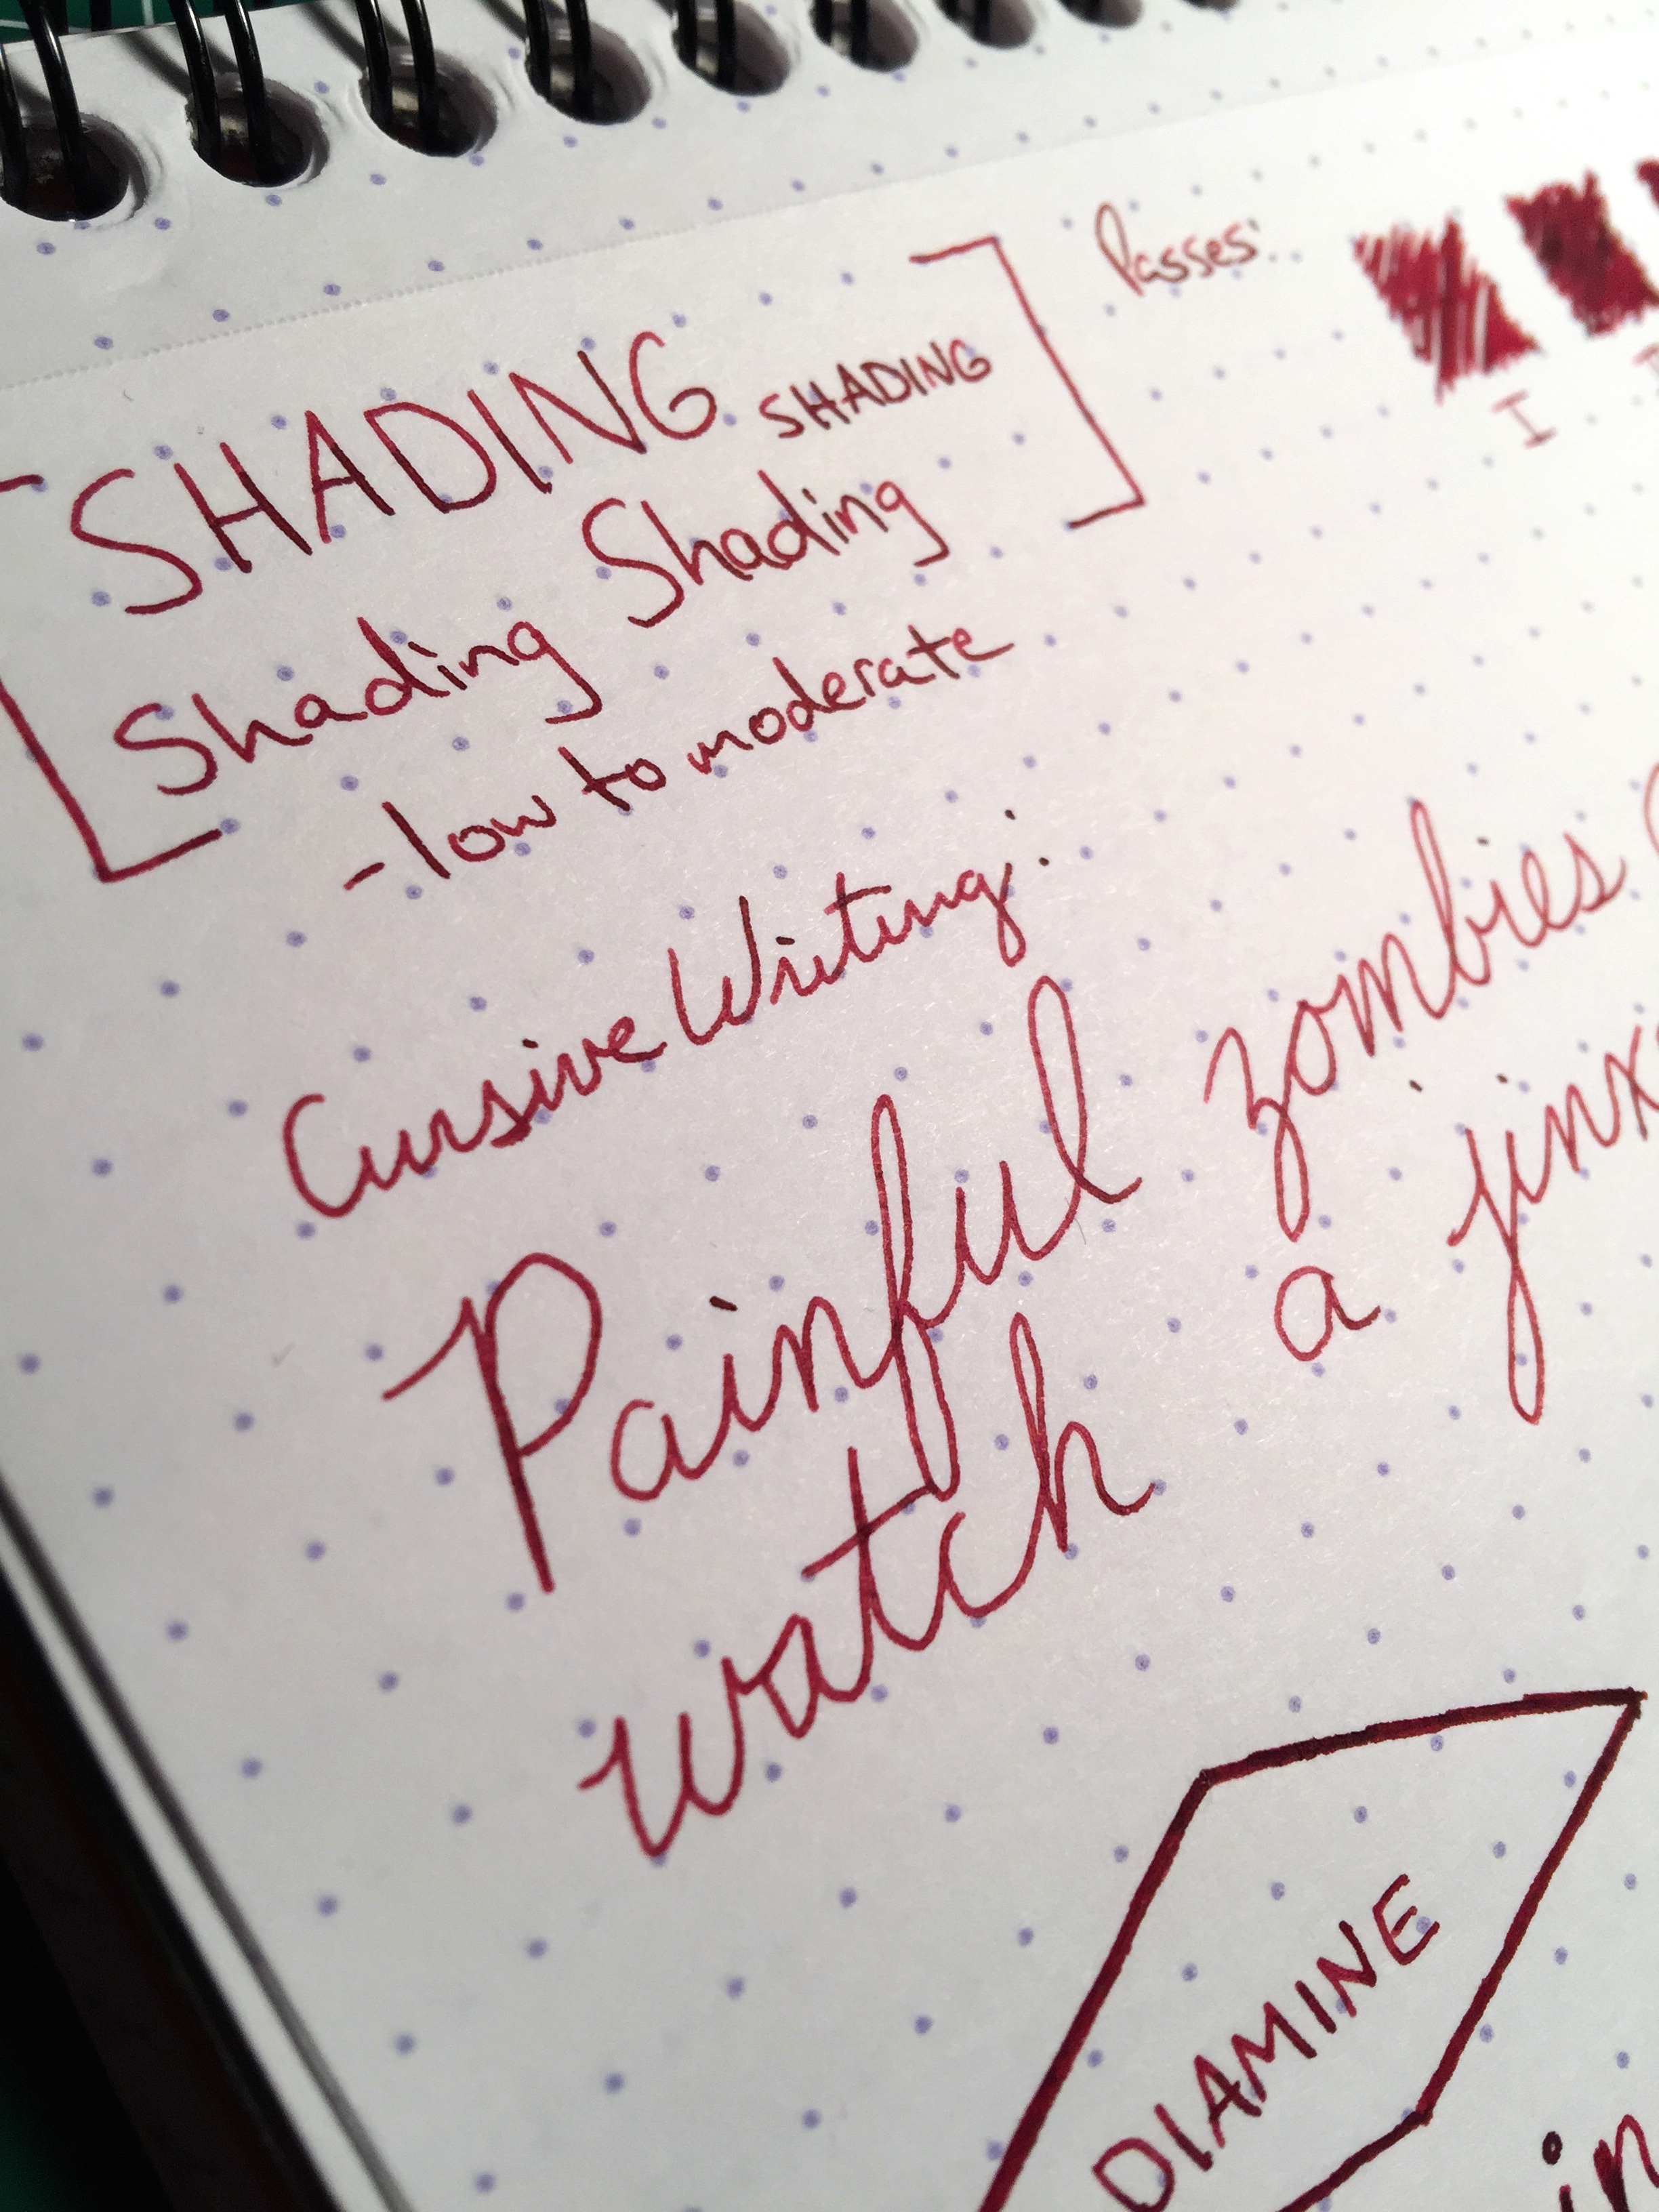 SHADING SHADING
Shading Shading
- low to moderate
Passes:
I
Cursive Writing:
Painful zombies
watch a jinx
DIAMINE
in